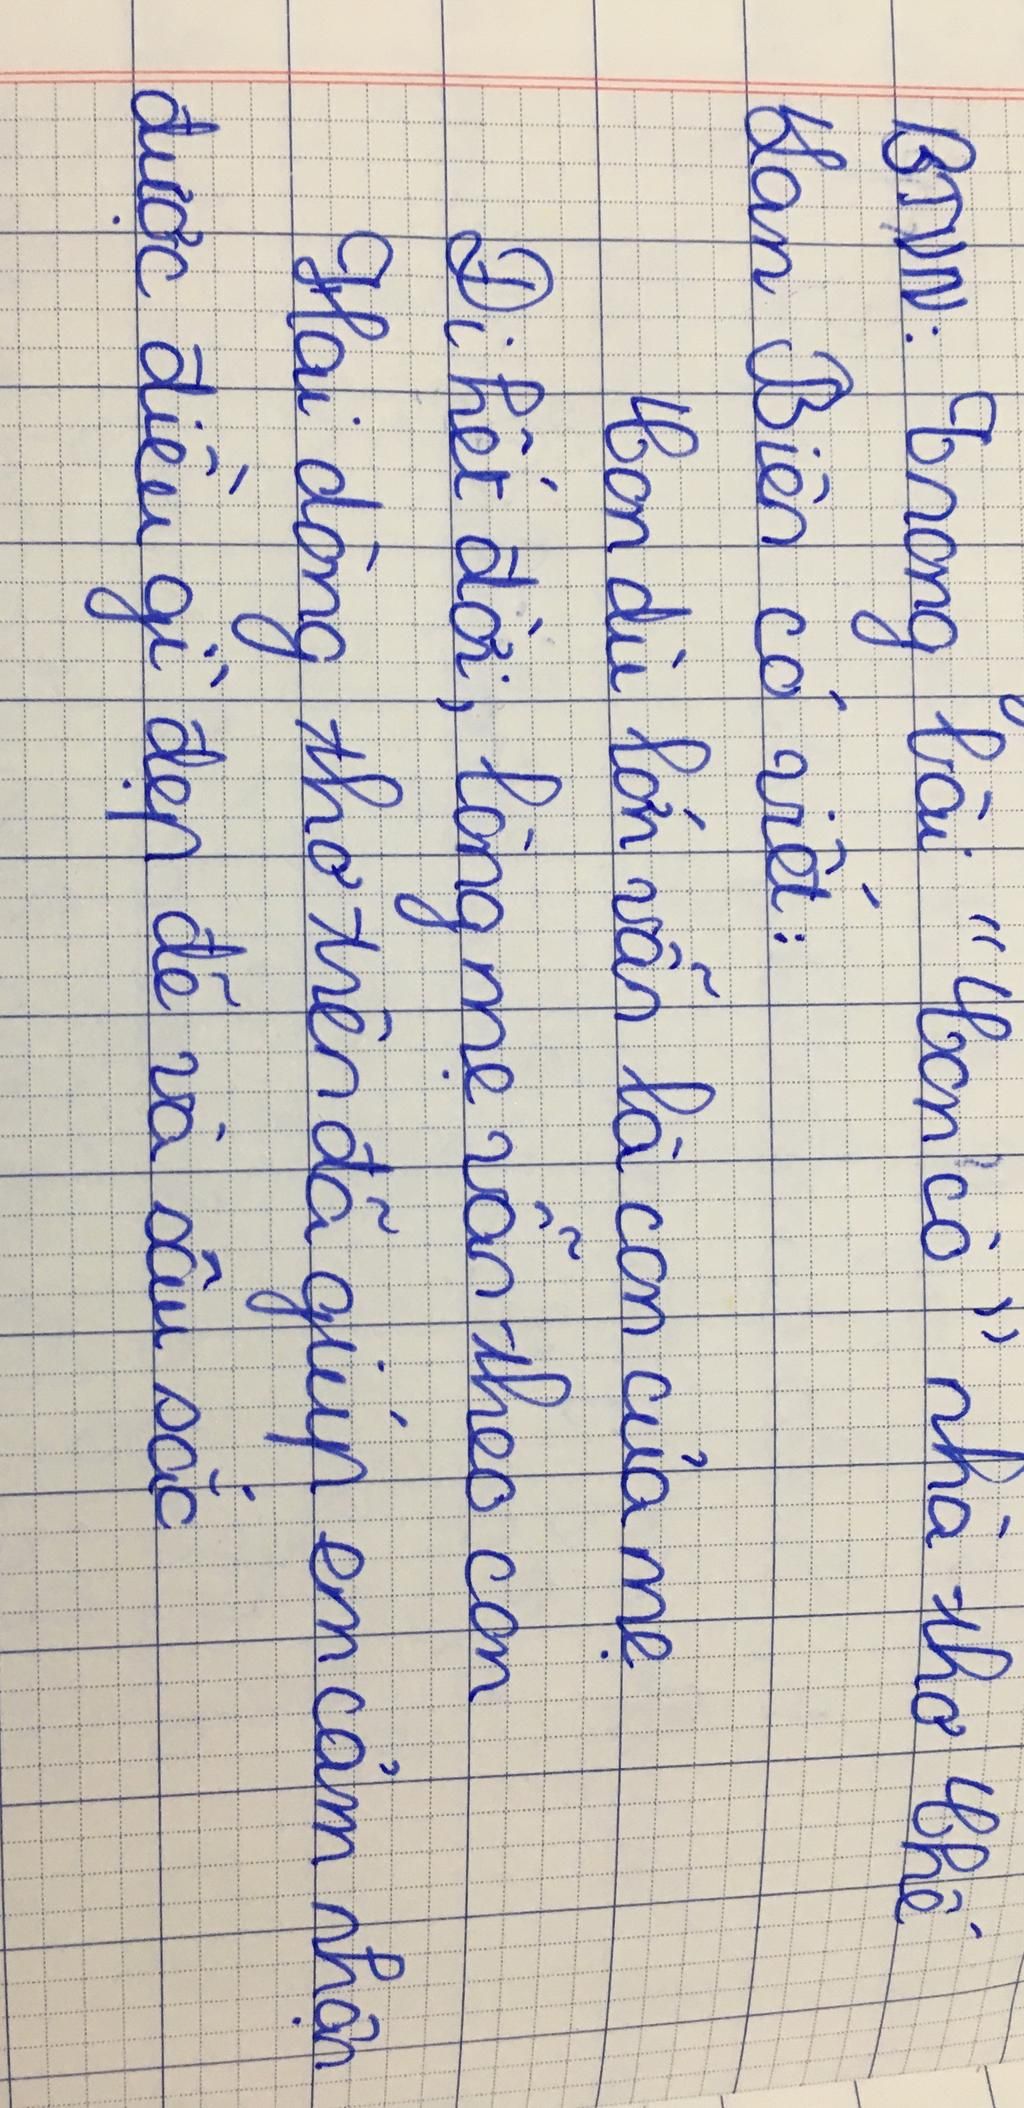 BTVN: Trong bài "Con cò" nhà thơ Chế
Lan Biên có viết:
Con dù lớn vẫn là con của mẹ
Đi hết đời, lòng mẹ vẫn theo con
Hai dòng thơ trên đã giúp em cảm nhận
được điều gì đẹp đẽ và sâu sắc